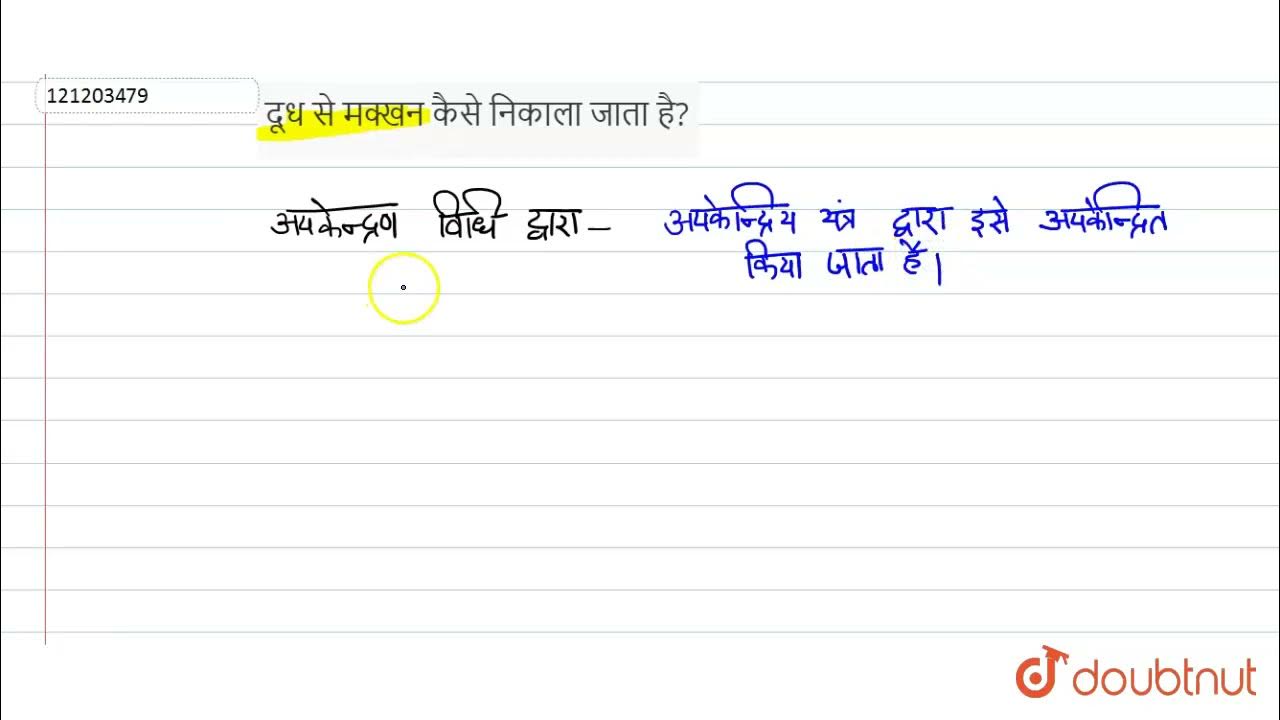 121203479
दूध से मक्खन कैसे निकाला जाता है?
अपकेन्द्रण विधि द्वारा – अपकेन्द्रिय यंत्र द्वारा इसे अपकेन्द्रित
किया जाता है।
doubtnut